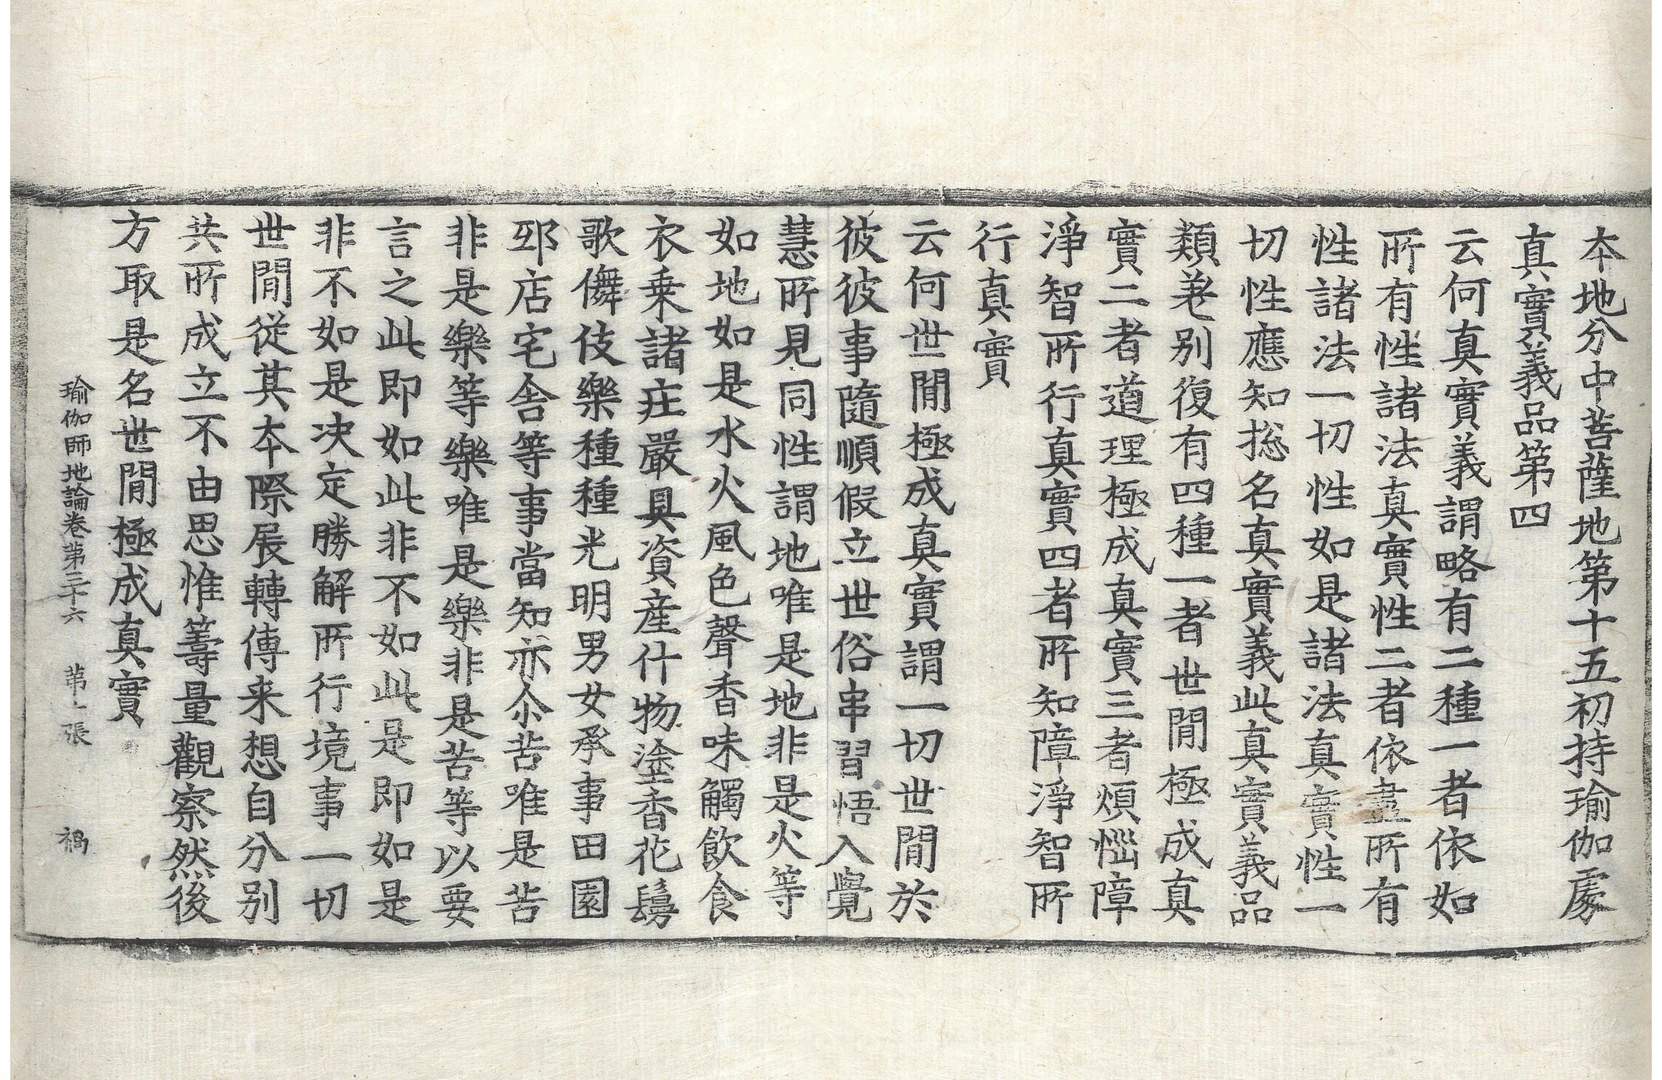 本地分中菩薩地第十五初持瑜伽處
真實義品第四
云何真實義謂略有二種一者依如
所有性諸法真實性二者依盡所有
性諸法一切性如是諸法真實性一
切性應知捴名真實義此真實義品
類差别復有四種一者世間極成真
實二者道理極成真實三者煩惱障
淨智所行真實四者所知障淨智所
行真實
云何世間極成真實謂一切世間於
彼彼事隨順假立世俗串習悟入覺
慧所見同性謂地唯是地非是火等
如地如是水火風色聲香味觸飲食
衣乗諸庄嚴具資産什物塗香花鬘
歌儛伎樂種種光明男女承事田園
邸店宅舎等事當知亦尒苦唯是苦
非是樂等樂唯是樂非是苦等以要
言之此即如此非不如此是即如是
非不如是决定勝解所行境事一切
世間從其本際展轉傳来想自分别
共所成立不由思惟籌量觀察然後
方取是名世間極成真實
瑜伽師地論卷第三十六 苐一張 禍